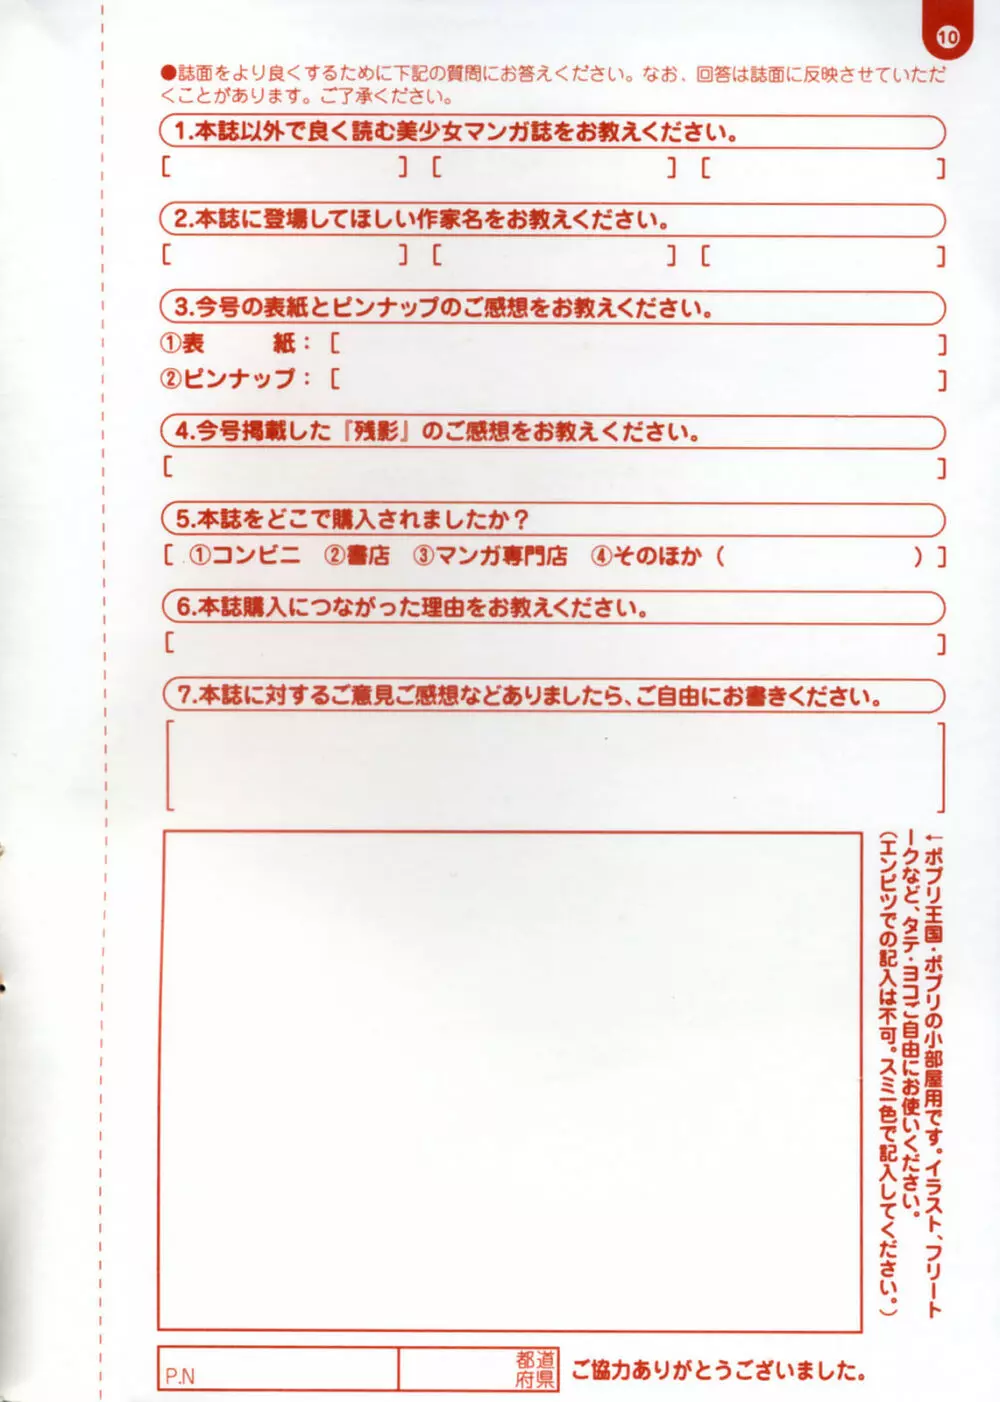 10
●誌面をより良くするために下記の質問にお答えください。なお、回答は誌面に反映させていただ
くことがあります。ご了承ください。
1.本誌以外で良く読む美少女マンガ誌をお教えください。
[ ] [ ] [ ]
2.本誌に登場してほしい作家名をお教えください。
[ ] [ ] [ ]
3.今号の表紙とピンナップのご感想をお教えください。
①表 紙：[ ]
②ピンナップ：[ ]
4.今号掲載した『残影』のご感想をお教えください。
[ ]
5.本誌をどこで購入されましたか？
[ ①コンビニ ②書店 ③マンガ専門店 ④そのほか（ ）]
6.本誌購入につながった理由をお教えください。
[ ]
7.本誌に対するご意見ご感想などありましたら、ご自由にお書きください。
[ ]
←ポプリ王国・ポプリの小部屋用です。イラスト、フリート
ークなど、タテ・ヨコご自由にお使いください。
（エンピツでの記入は不可。スミ一色で記入してください。）
P.N
都道
府県
ご協力ありがとうございました。